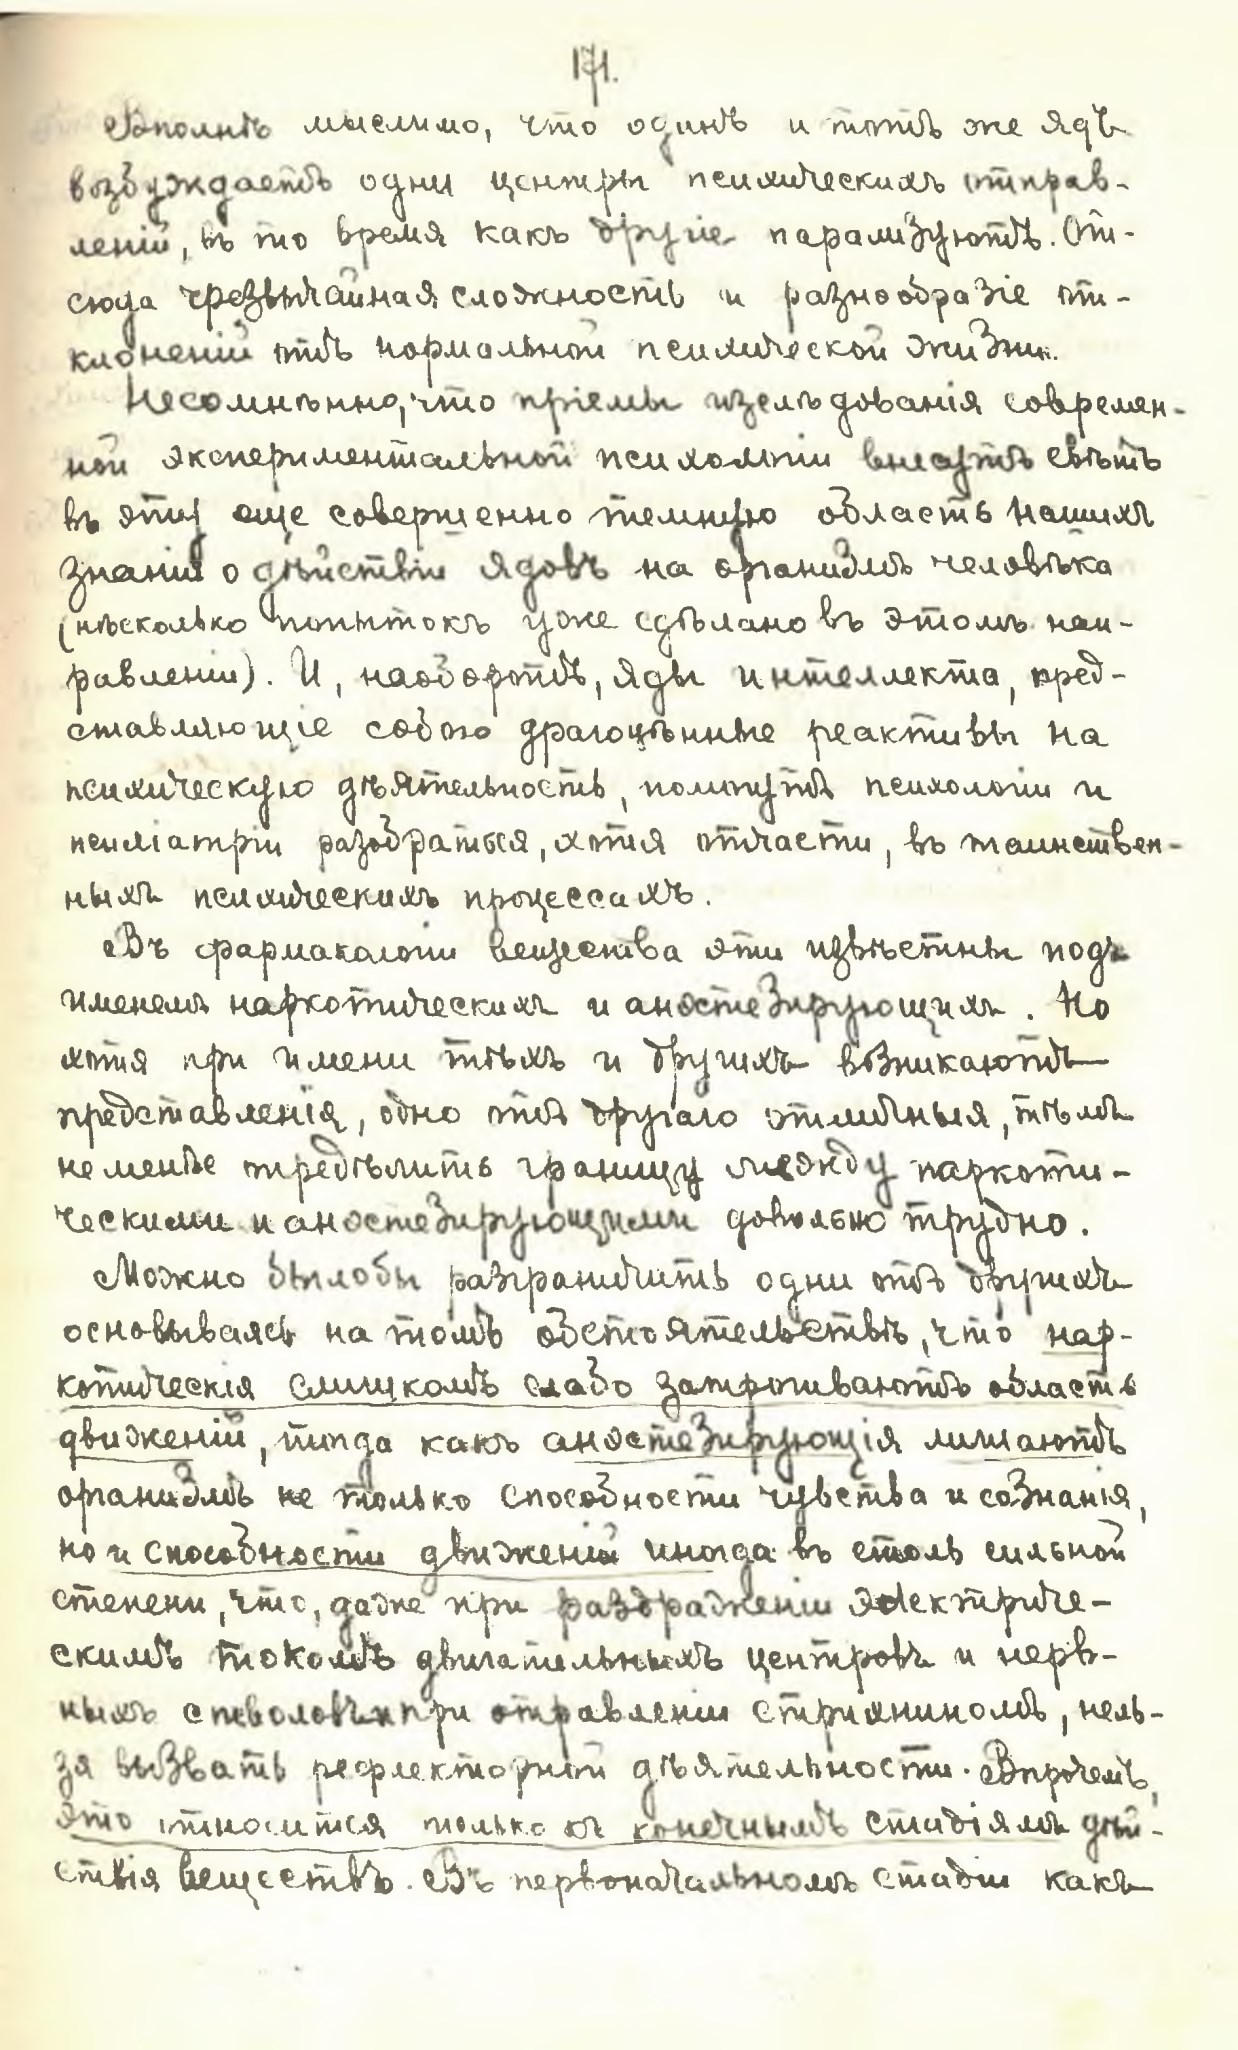 171.
Вполнѣ мыслимо, что одинъ и тотъ же ядъ
возбуждаетъ одни центры психическихъ отправ-
леній, въ то время какъ другіе парализуютъ. От-
сюда чрезвычайная сложность и разнообразіе от-
клоненій отъ нормальной психической жизни.
Несомнѣнно, что пріемы изслѣдованія современ-
ной экспериментальной психологіи внесутъ свѣтъ
въ эту еще совершенно темную область нашихъ
знаній о дѣйствіи ядовъ на организмъ человѣка
(нѣсколько попытокъ уже сдѣлано въ этомъ нап-
равленіи). И, наоборотъ, яды интеллекта, пред-
ставляющіе собою драгоцѣнные реактивы на
психическую дѣятельность, помогутъ психологіи и
психіатріи разобраться, хотя отчасти, въ таинствен-
ныхъ психическихъ процессахъ.
Въ фармакологіи вещества эти извѣстны подъ
именемъ наркотическихъ и анэстезирующихъ. Но
хотя при имени тѣхъ и другихъ возникаютъ
представленія, одно отъ другаго отличныя, тѣмъ
не менѣе опредѣлить границу между наркоти-
ческими и анэстезирующими довольно трудно.
Можно былобы разграничить одни отъ другихъ
основываясь на томъ обстоятельствѣ, что нар-
котическія слишкомъ слабо затрогиваютъ область
движеній, тогда какъ анэстезирующія лишаютъ
организмъ не только способности чувства и сознанія,
но и способности движеній иногда въ столь сильной
степени, что, даже при раздраженіи электриче-
скимъ токомъ двигательныхъ центровъ и нерв-
ныхъ стволовъ и при отравленіи стрихниномъ, нель-
зя вызвать рефлекторной дѣятельности. Впрочемъ,
это относится только къ конечнымъ стадіямъ дѣй-
ствія веществъ. Въ первоначальномъ стадіи какъ